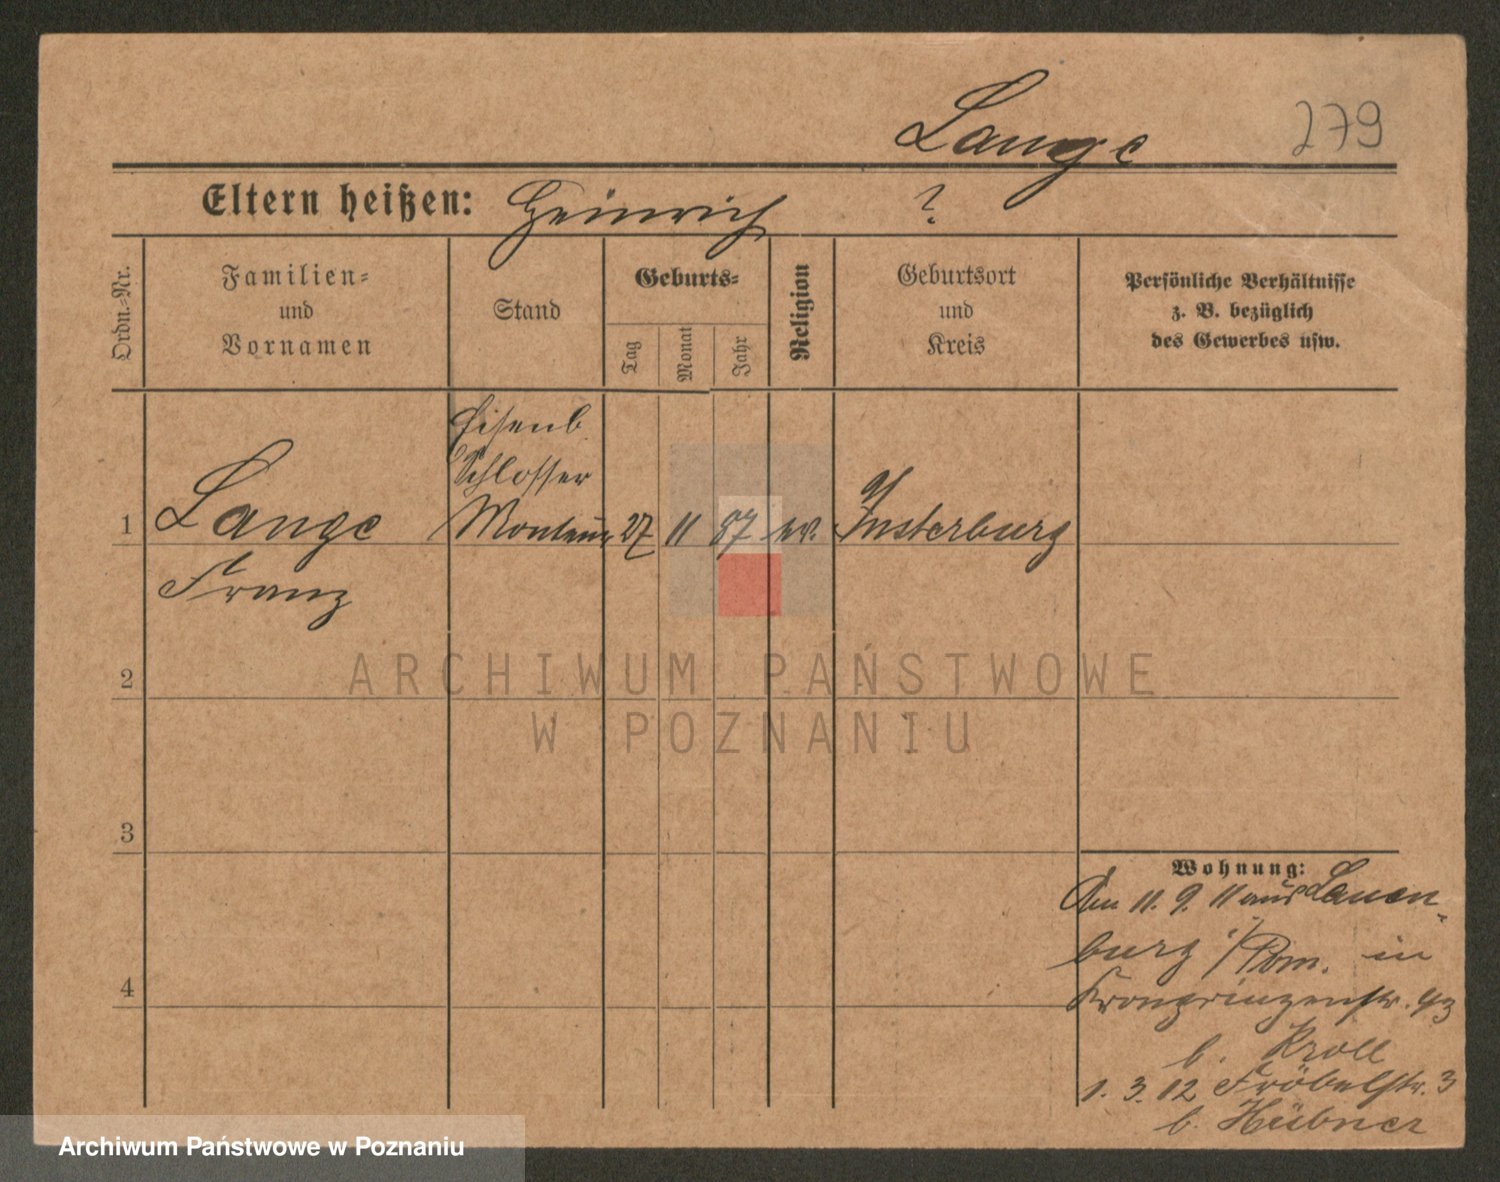 Lange
279
Eltern heißen: Heinrich ?
Ordn.-Nr.
Familien-
und
Vornamen
Stand
Geburts-
Tag
Monat
Jahr
Religion
Geburtsort
und
Kreis
Persönliche Verhältnisse
z. B. bezüglich
des Gewerbes usw.
Eisenb
Schlosser
1 Lange Monteur 27 11 87 ev. Insterburg
Franz
2
ARCHIWUM PAŃSTWOWE
W POZNANIU
3
Wohnung:
Am 11. 9. 11 aus Lauen-
burg i/Pom. in
4
Kronprinzenstr. 93
b. Kroll
1. 3. 12 Fröbelstr. 3
b. Hübner
Archiwum Państwowe w Poznaniu